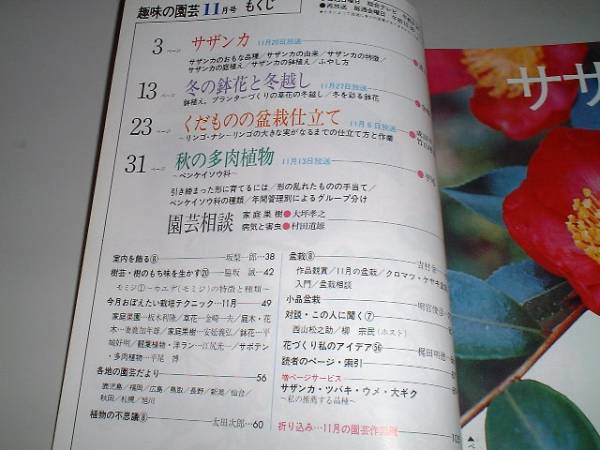 趣味の園芸 11月号 もくじ
3ページ サザンカ 11月20日放送
サザンカのおもな品種／サザンカの由来／サザンカの特徴／
サザンカの庭植え／サザンカの鉢植え／ふやし方
13ページ 冬の鉢花と冬越し 11月27日放送
鉢植え、プランターづくりの草花の冬越し／冬を彩る鉢花
23ページ くだものの盆栽仕立て 11月6日放送
〜リンゴ・ナシ〜リンゴの大きな実がなるまでの仕立て方と作業
31ページ 秋の多肉植物 11月13日放送
〜ベンケイソウ科〜
引き締まった形に育てるには／形の乱れたものの手当て／
ベンケイソウ科の種類／年間管理別によるグループ分け
園芸相談 家庭果樹●大坪孝之
病気と害虫●村田道雄
室内を飾る⑧
38
樹芸・樹のもち味を生かす⑳ 脇坂 誠…42
モミジ①〜カエデ(モミジ)の特徴と種類〜
今月おぼえたい栽培テクニック…11月 49
家庭菜園―板木利隆／草花―金崎一夫／庭木・花
木―
家庭果樹―
鉢花―平
城好明／観葉植物・洋ラン―江尻光一／サボテン
・多肉植物―平尾 博
各地の園芸だより 56
鹿児島／福岡／広島／鳥取／長野／新潟／仙台／
秋田／札幌／旭川
植物の不思議⑧ 太田次郎…60
盆栽⑧
作品観賞／11月の盆栽／クロマツ・ケヤキ
入門／盆栽相談
小品盆栽 明官俊彦
対談・この人に聞く⑦
西山松之助／柳 宗民(ホスト)
花づくり私のアイデア
梶田明
読者のページ・索引
増ページサービス
サザンカ・ツバキ・ウメ・大ギク
〜私の推薦する品種〜
折り込み…11月の園芸作業
サザ